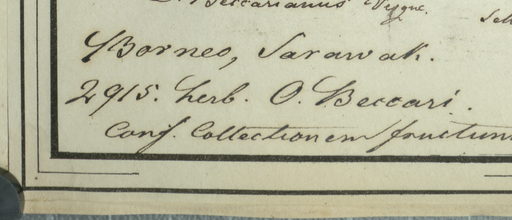 Beccarianus
Borneo, Sarawak.
2915. herb. O. Beccari.
Conf. Collectionem fructuum